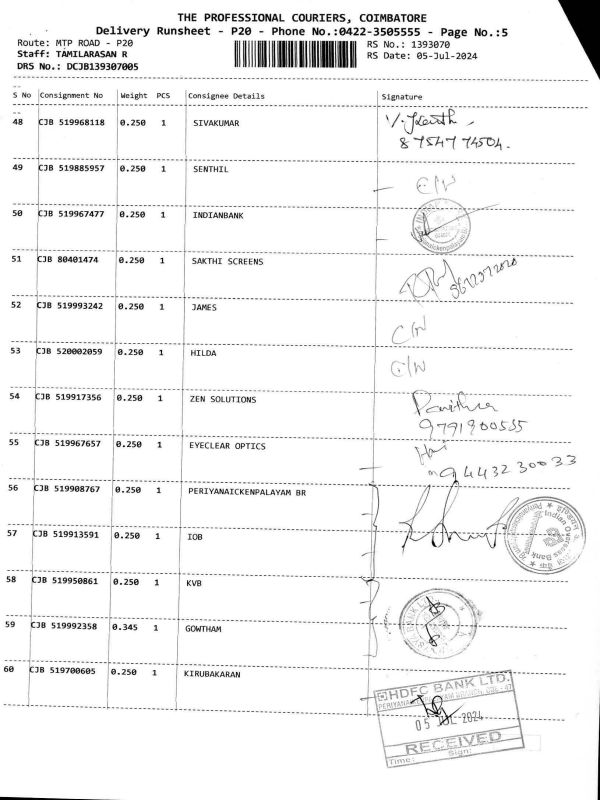 THE PROFESSIONAL COURIERS, COIMBATORE
Delivery Runsheet - P20 - Phone No.:0422-3505555 - Page No.:5
Route: MTP ROAD - P20
Staff: TAMILARASAN R
DRS No.: DCJB139307005
RS No.: 1393070
RS Date: 05-Jul-2024
S No Consignment No Weight PCS Consignee Details Signature
48 CJB 519968118 0.250 1 SIVAKUMAR
87547 74504.
49 CJB 519885957 0.250 1 SENTHIL
C/N
50 CJB 519967477 0.250 1 INDIANBANK
51 CJB 80401474 0.250 1 SAKTHI SCREENS
52 CJB 519993242 0.250 1 JAMES
C/N
53 CJB 520002059 0.250 1 HILDA
C/N
54 CJB 519917356 0.250 1 ZEN SOLUTIONS
Pavithra
9791900555
55 CJB 519967657 0.250 1 EYECLEAR OPTICS
Hari
94432 30033
56 CJB 519908767 0.250 1 PERIYANAICKENPALAYAM BR
57 CJB 519913591 0.250 1 IOB
Indian Overseas Bank
58 CJB 519950861 0.250 1 KVB
59 CJB 519992358 0.345 1 GOWTHAM
60 CJB 519700605 0.250 1 KIRUBAKARAN
HDFC BANK LTD.
05 JUL 2024
RECEIVED
Time: Sign: